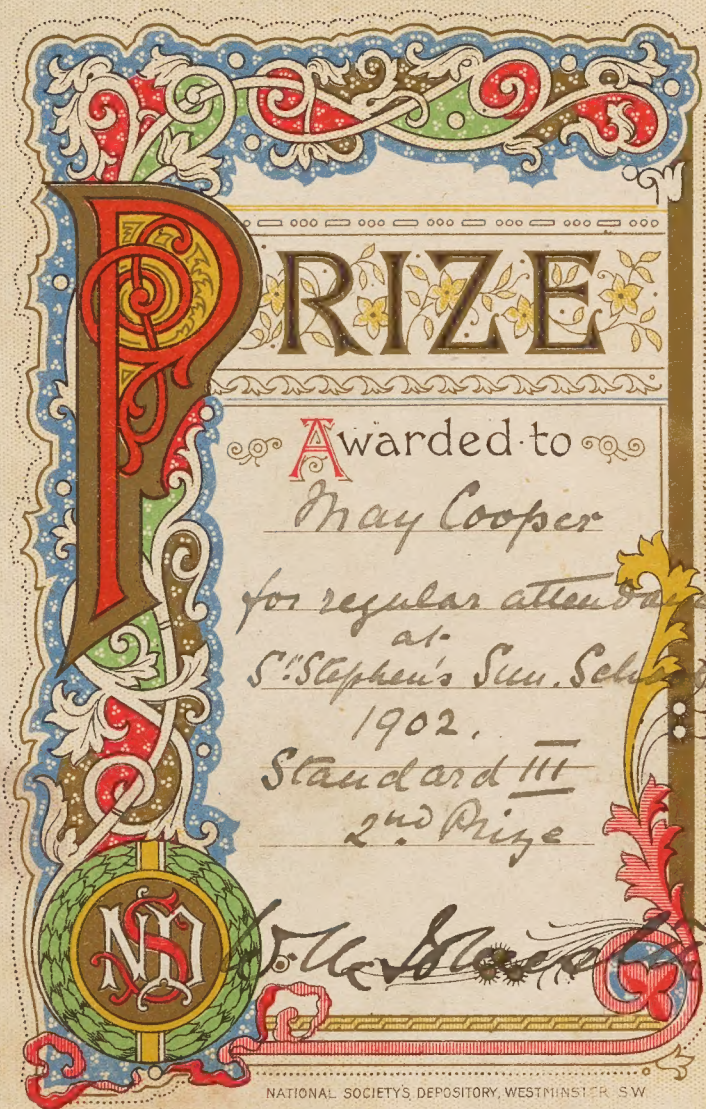 PRIZE
Awarded·to
May Cooper
for regular attendance
at
St Stephen's Sun. School
1902.
Standard III
2nd. Prize
W.
NSD
NATIONAL SOCIETY'S DEPOSITORY, WESTMINSTER S.W.